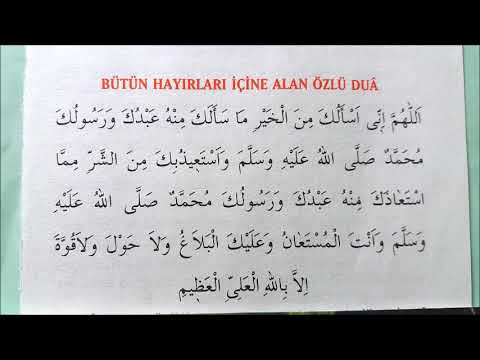 BÜTÜN HAYIRLARI İÇİNE ALAN ÖZLÜ DUÂ
اَللّٰهُمَّ اِنّ۪ى اَسْأَلُكَ مِنَ الْخَيْرِ مَا سَأَلَكَ مِنْهُ عَبْدُكَ وَرَسُولُكَ
مُحَمَّدٌ صَلَّى اللهُ عَلَيْهِ وَسَلَّمَ وَاَسْتَع۪يذُبِكَ مِنَ الشَّرِّ مِمَّا
اسْتَعَاذَكَ مِنْهُ عَبْدُكَ وَرَسُولُكَ مُحَمَّدٌ صَلَّى اللهُ عَلَيْهِ
وَسَلَّمَ وَاَنْتَ الْمُسْتَعَانُ وَعَلَيْكَ الْبَلَاغُ وَلَا حَوْلَ وَلَاقُوَّةَ
اِلاَّ بِاللهِ الْعَلِىِّ الْعَظ۪يمِ